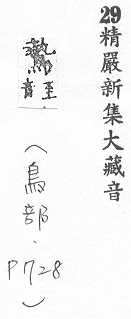 29精嚴新集大藏音
鷙音至
（鳥部．P728）